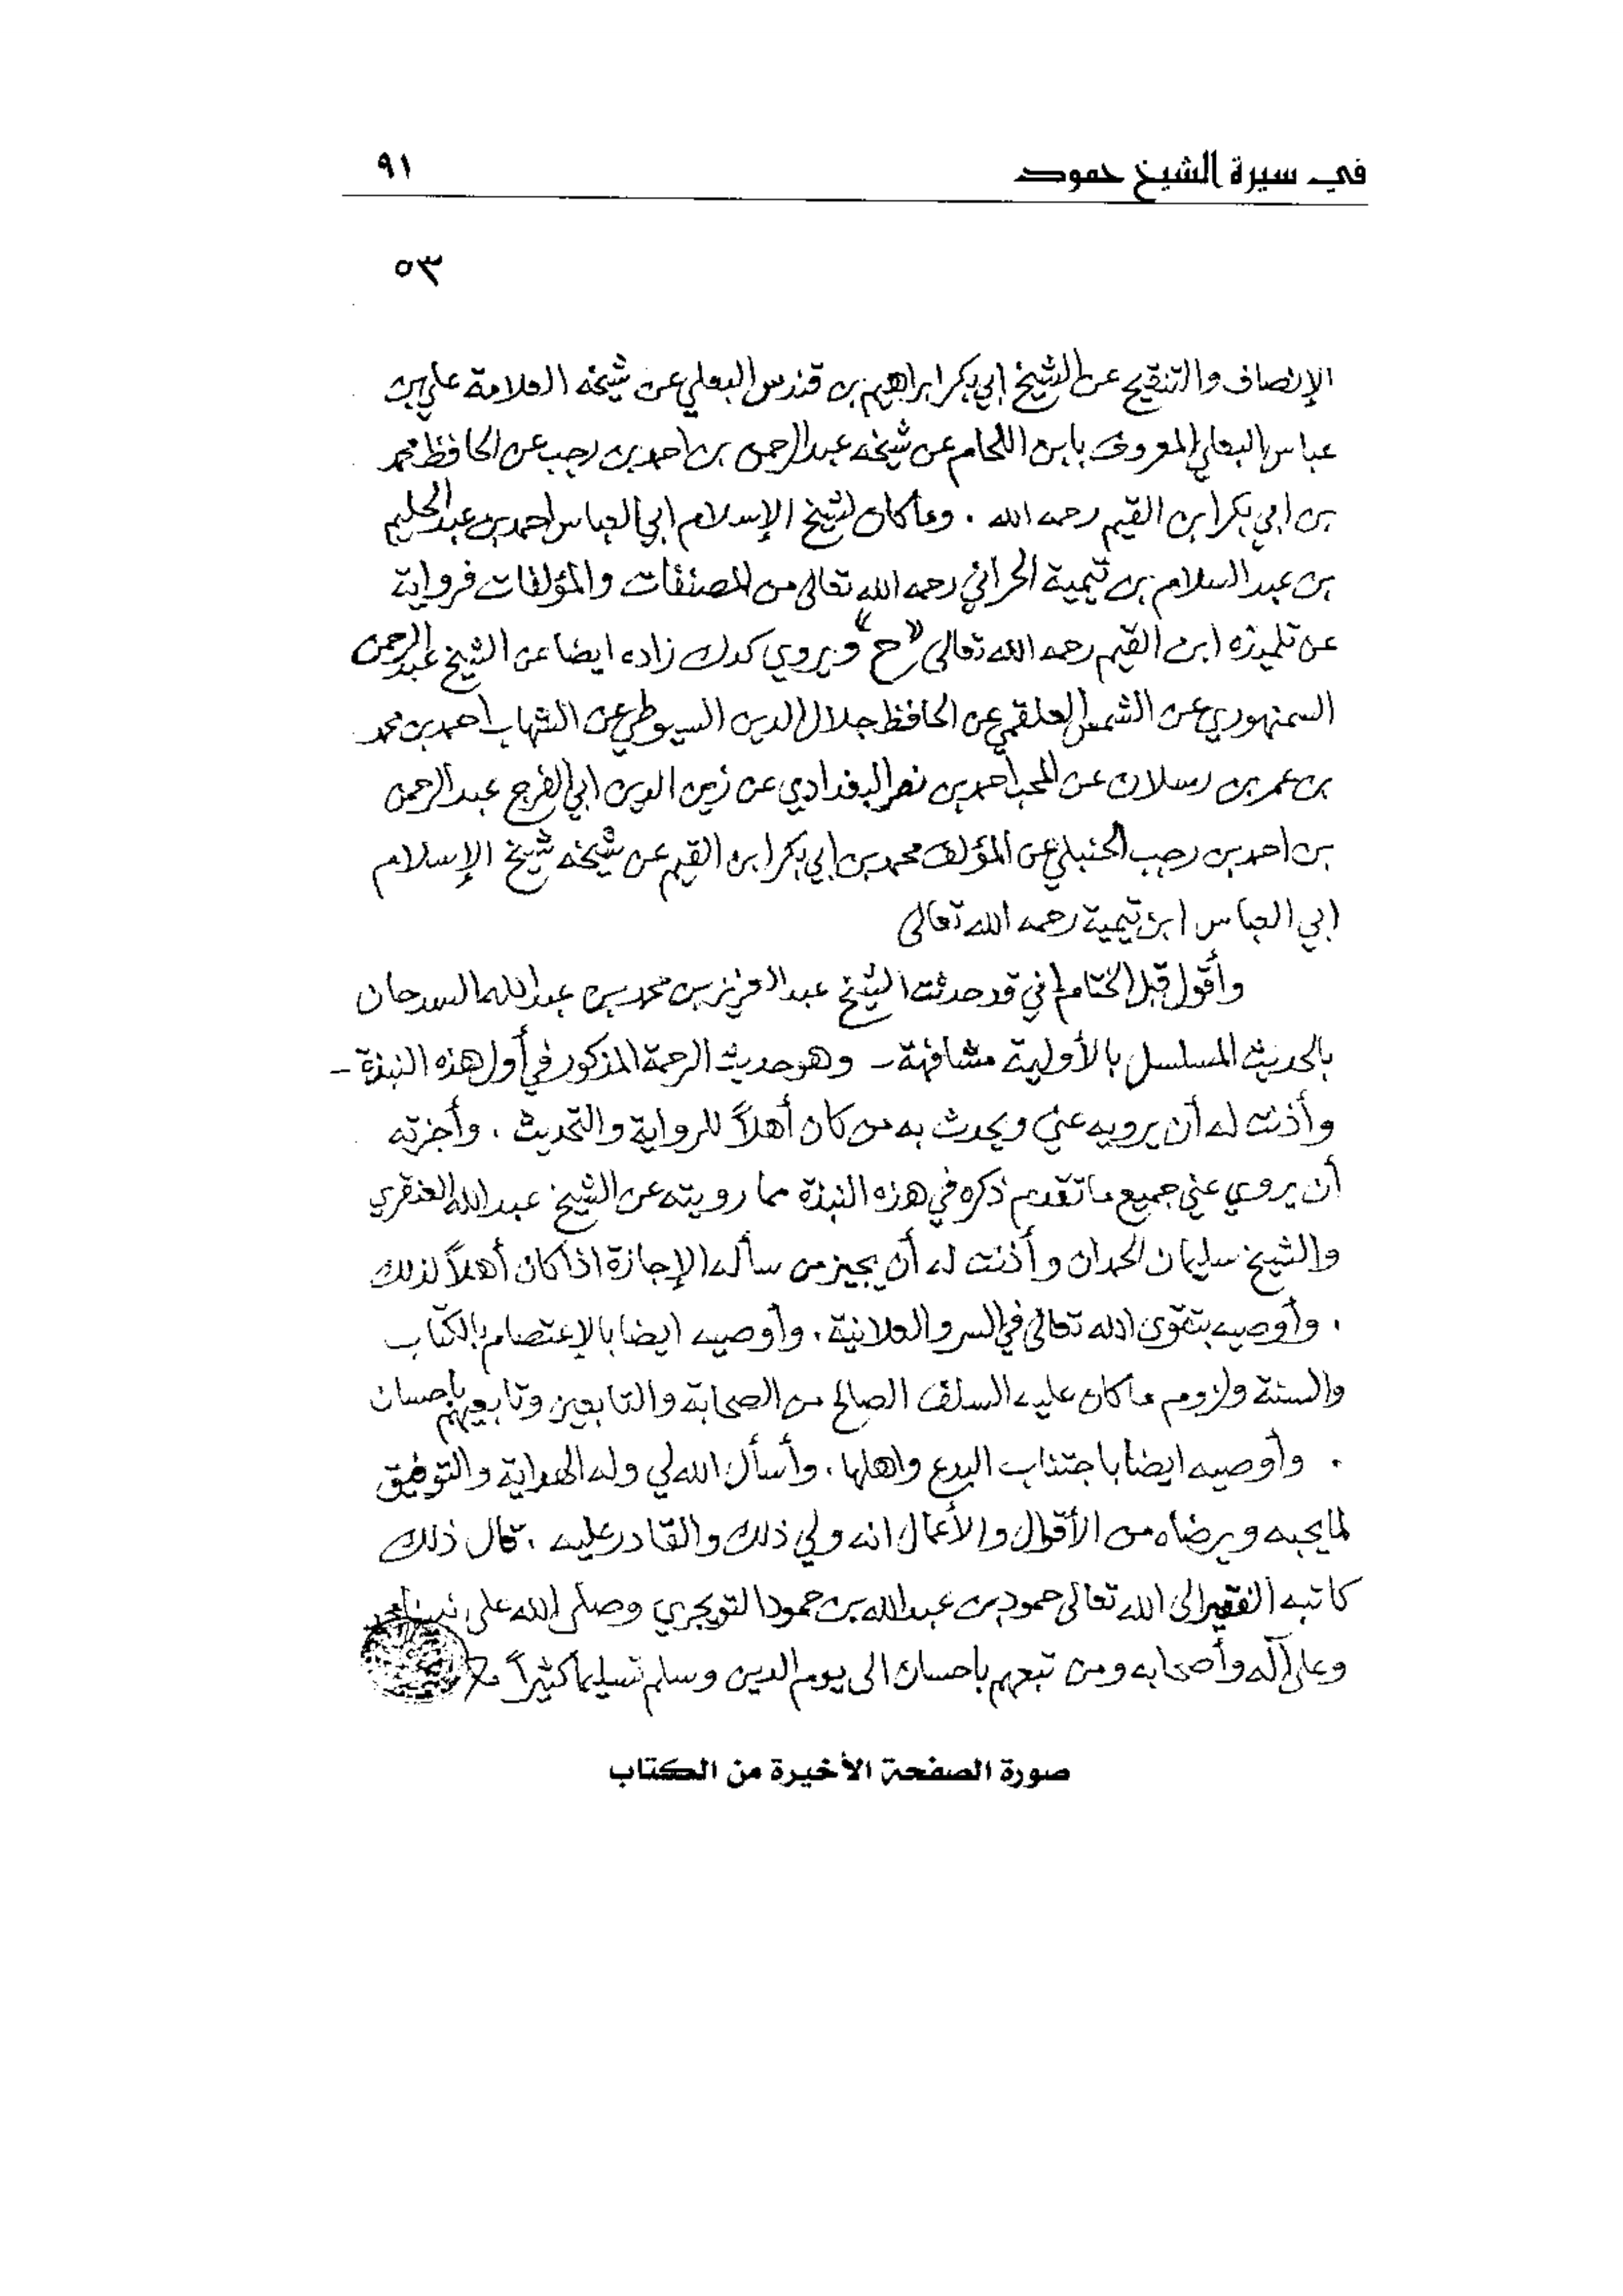 في سيرة الشيخ حمود ٩١
٥٣
الإنصاف والتنقيح عن الشيخ ابي بكر ابراهيم بن قندس البعلي عن شيخه العلامة علي بن
عباس البعلي المعروف بابن اللحام عن شيخه عبد الرحمن بن احمد بن رجب عن الحافظ محمد
بن ابي بكر ابن القيم رحمه الله . وما كان لشيخ الإسلام ابي العباس احمد بن عبد الحليم
بن عبد السلام بن تيمية الحراني رحمه الله تعالى من المصنفات والمؤلفات فرواية
عن تلميذه ابن القيم رحمه الله تعالى «ح» ويروي كدك زاده ايضا عن الشيخ عبد الرحمن
السمنهوري عن الشمس العلقمي عن الحافظ جلال الدين السيوطي عن الشهاب احمد بن محمد
بن عمر بن رسلان عن المحب احمد بن نصر البغدادي عن زين الدين ابي الفرج عبد الرحمن
بن احمد بن رجب الحنبلي عن المؤلف محمد بن ابي بكر ابن القيم عن شيخه شيخ الإسلام
ابي العباس ابن تيمية رحمه الله تعالى
وأقول قبل الختام اني قد حدثت الشيخ عبد العزيز بن محمد بن عبد الله السدحان
بالحديث المسلسل بالأولية مشافهة - وهو حديث الرحمة المذكور في أول هذه النبذة -
وأذنت له أن يرويه عني ويحدث به من كان أهلاً للرواية والتحديث . وأجزته
أن يروي عني جميع ما تقدم ذكره في هذه النبذة مما رويته عن الشيخ عبد الله العنقري
والشيخ سليمان الحمدان وأذنت له أن يجيز من سأله الإجازة اذا كان أهلاً لذلك
. وأوصيه بتقوى الله تعالى في السر والعلانية . وأوصيه ايضا بالإعتصام بالكتاب
والسنة ولزوم ما كان عليه السلف الصالح من الصحابة والتابعين وتابعيهم باحسان
. وأوصيه ايضا باجتناب البدع واهلها . وأسأل الله لي وله الهداية والتوفيق
لما يحبه ويرضاه من الأقوال والأعمال انه ولي ذلك والقادر عليه . قال ذلك
كاتبه الفقير الى الله تعالى حمود بن عبد الله بن حمود التويجري وصلى الله على نبينا محمد
وعلى آله وأصحابه ومن تبعهم باحسان الى يوم الدين وسلم تسليما كثيراً
صورة الصفحة الأخيرة من الكتاب